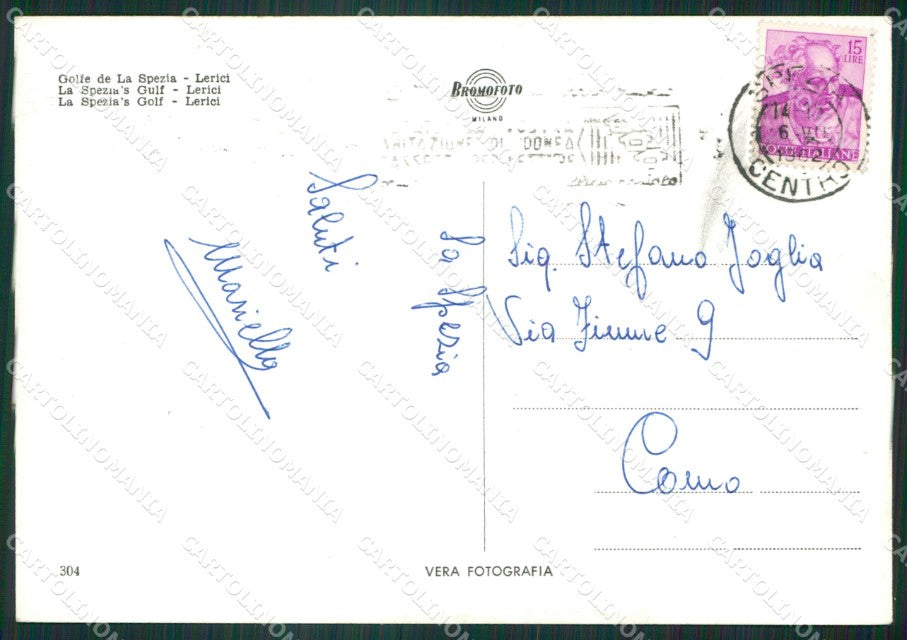 Golfe de La Spezia - Lerici
La Spezia's Gulf - Lerici
La Spezia's Golf - Lerici
BROMOFOTO
MILANO
15
LIRE
CENTRO
Saluti
Mariella
La Spezia
Sig. Stefano Joglia
Via Fiume 9
Como
304
VERA FOTOGRAFIA
CARTOLINOMANIA